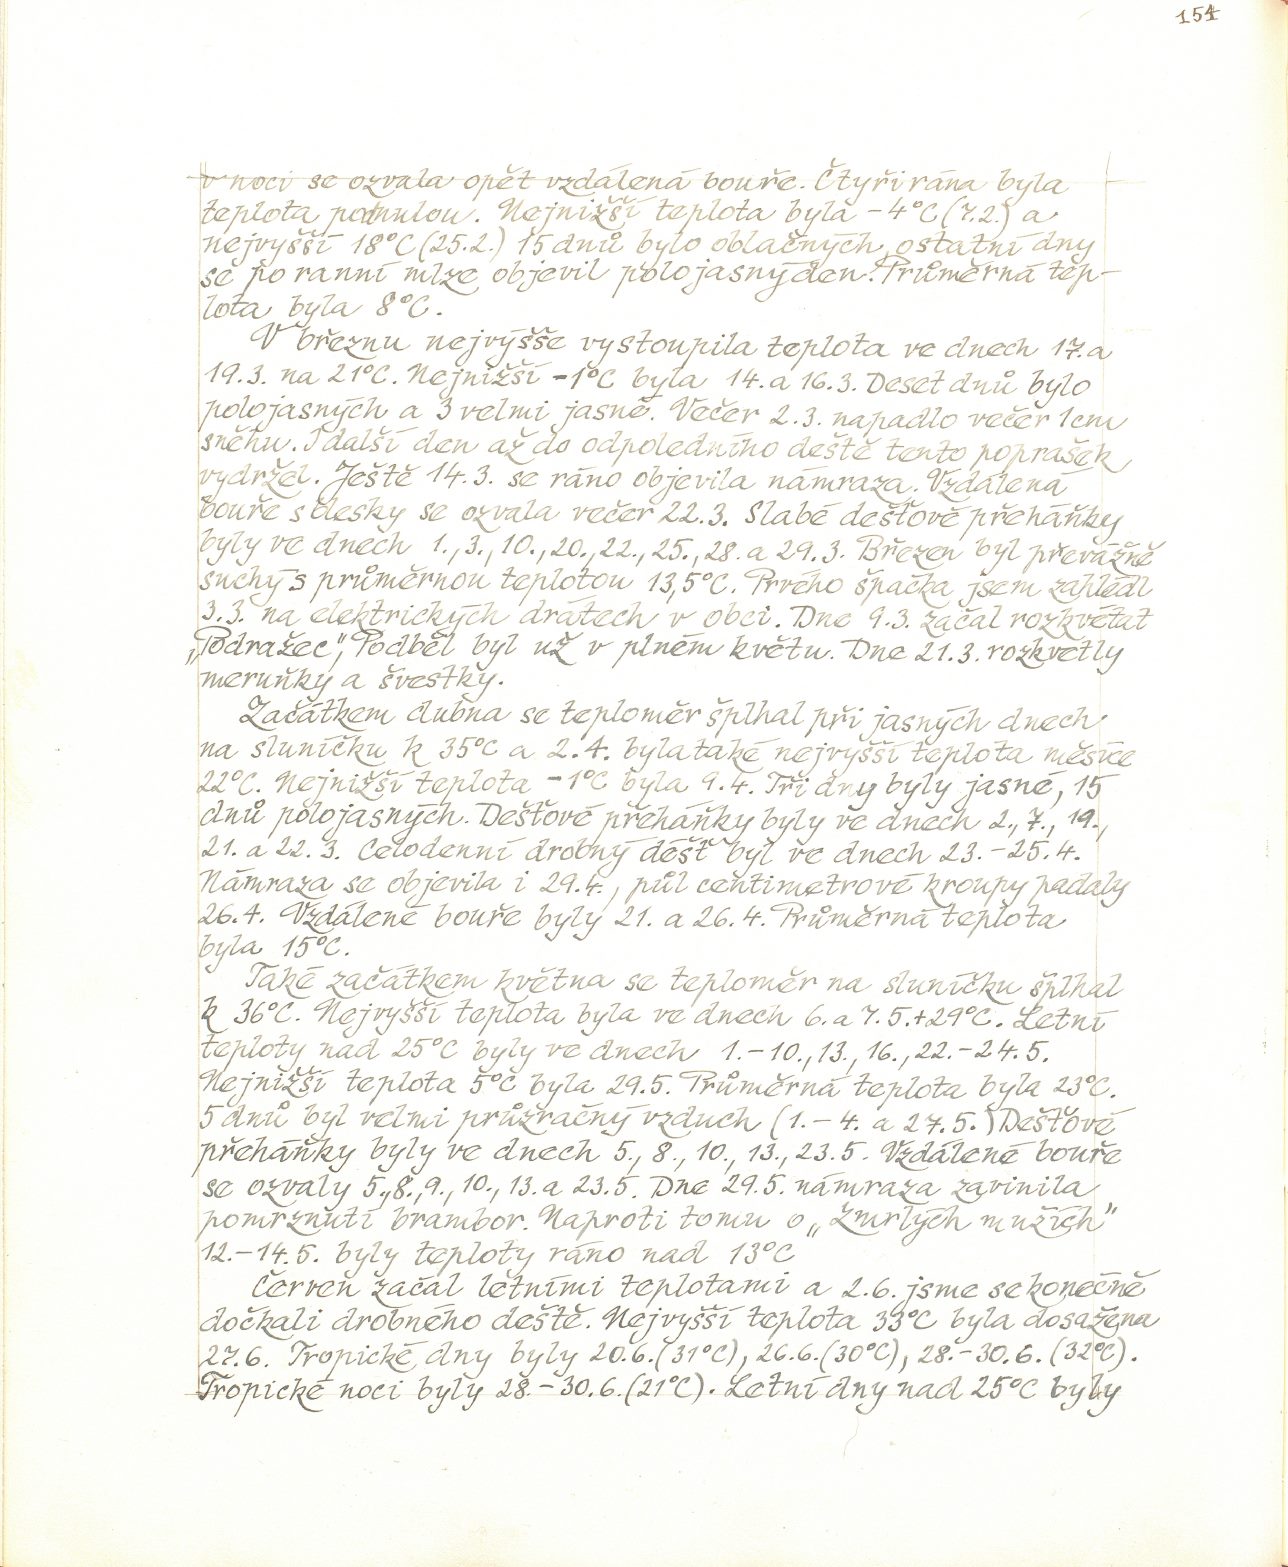 154
v noci se ozvala opět vzdálená bouře. Čtyři rána byla
teplota pod nulou. Nejnižší teplota byla -4°C (7.2.) a
nejvyšší 18°C (25.2.) 15 dnů bylo oblačných, ostatní dny
se po ranní mlze objevil polojasný den. Průměrná tep-
lota byla 8°C.
V březnu nejvýšše vystoupila teplota ve dnech 17. a
19.3. na 21°C. Nejnižší -1°C byla 14. a 16.3. Deset dnů bylo
polojasných a 3 velmi jasné. Večer 2.3. napadlo večer 1cm
sněhu. I další den až do odpoledního deště tento poprašek
vydržel. Ještě 14.3. se ráno objevila námraza. Vzdálená
bouře s blesky se ozvala večer 22.3. Slabé dešťové přeháňky
byly ve dnech 1., 3., 10., 20., 22., 25., 28. a 29.3. Březen byl převážně
suchý s průměrnou teplotou 13,5°C. Prvého špačka jsem zahlédl
3.3. na elektrických drátech v obci. Dne 9.3. začal rozkvétat
„Podražec", Podběl byl už v plném květu. Dne 21.3. rozkvetly
meruňky a švestky.
Začátkem dubna se teploměr šplhal při jasných dnech
na sluníčku k 35°C a 2.4. byla také nejvyšší teplota měsíce
22°C. Nejnižší teplota -1°C byla 9.4. Tři dny byly jasné, 15
dnů polojasných. Dešťové přeháňky byly ve dnech 2., 7., 19.,
21. a 22.3. Celodenní drobný déšť byl ve dnech 23.-25.4.
Námraza se objevila i 29.4., půl centimetrové kroupy padaly
26.4. Vzdálené bouře byly 21. a 26.4. Průměrná teplota
byla 15°C.
Také začátkem května se teploměr na sluníčku šplhal
k 36°C. Nejvyšší teplota byla ve dnech 6. a 7.5. +29°C. Letní
teploty nad 25°C byly ve dnech 1.-10., 13., 16., 22.-24.5.
Nejnižší teplota 5°C byla 29.5. Průměrná teplota byla 23°C.
5 dnů byl velmi průzračný vzduch (1.-4. a 27.5.) Dešťové
přeháňky byly ve dnech 5., 8., 10., 13., 23.5. Vzdálené bouře
se ozvaly 5., 8., 9., 10., 13. a 23.5. Dne 29.5. námraza zavinila
pomrznutí brambor. Naproti tomu o „Zmrlých mužích"
12.-14.5. byly teploty ráno nad 13°C
Červen začal letními teplotami a 2.6. jsme se konečně
dočkali drobného deště. Nejvyšší teplota 33°C byla dosažena
27.6. Tropické dny byly 20.6. (31°C), 26.6. (30°C), 28.-30.6. (32°C).
Tropické noci byly 28.-30.6. (21°C). Letní dny nad 25°C byly